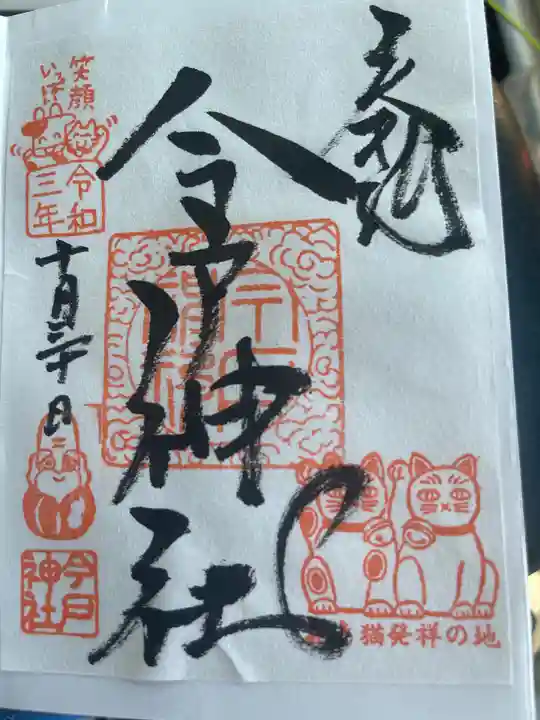 奉拝
今戸神社
猫発祥の地
笑顔
いっぱい
令和
三年
十月二十日
今戸
神社